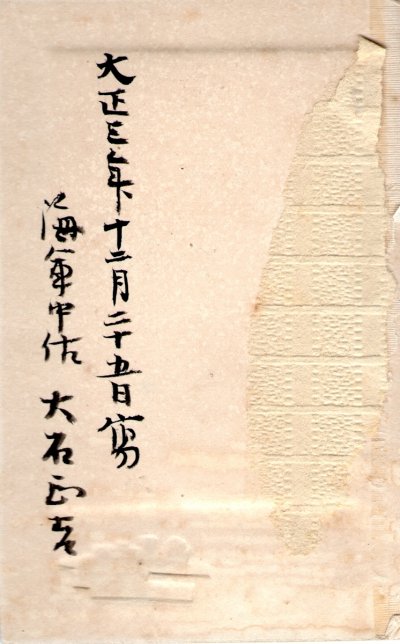 大正三年十二月二十五日写
海軍中佐 大石正吉